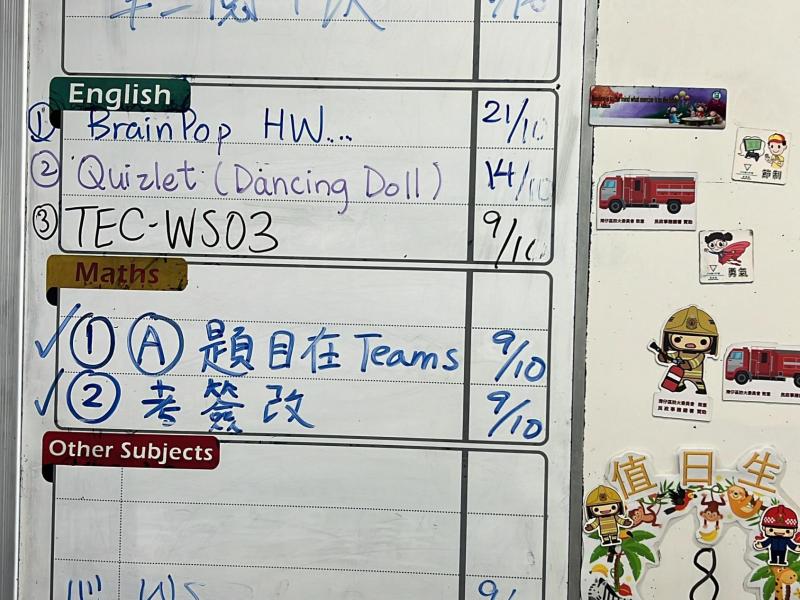 English
① BrainPop HW... 21/10
② Quizlet (Dancing Doll) 14/10
③ TEC-WS03 9/10
Maths
✓ ① Ⓐ 題目在 Teams 9/10
✓ ② 考簽改 9/10
Other Subjects
WS
節制
勇氣
值日生
8